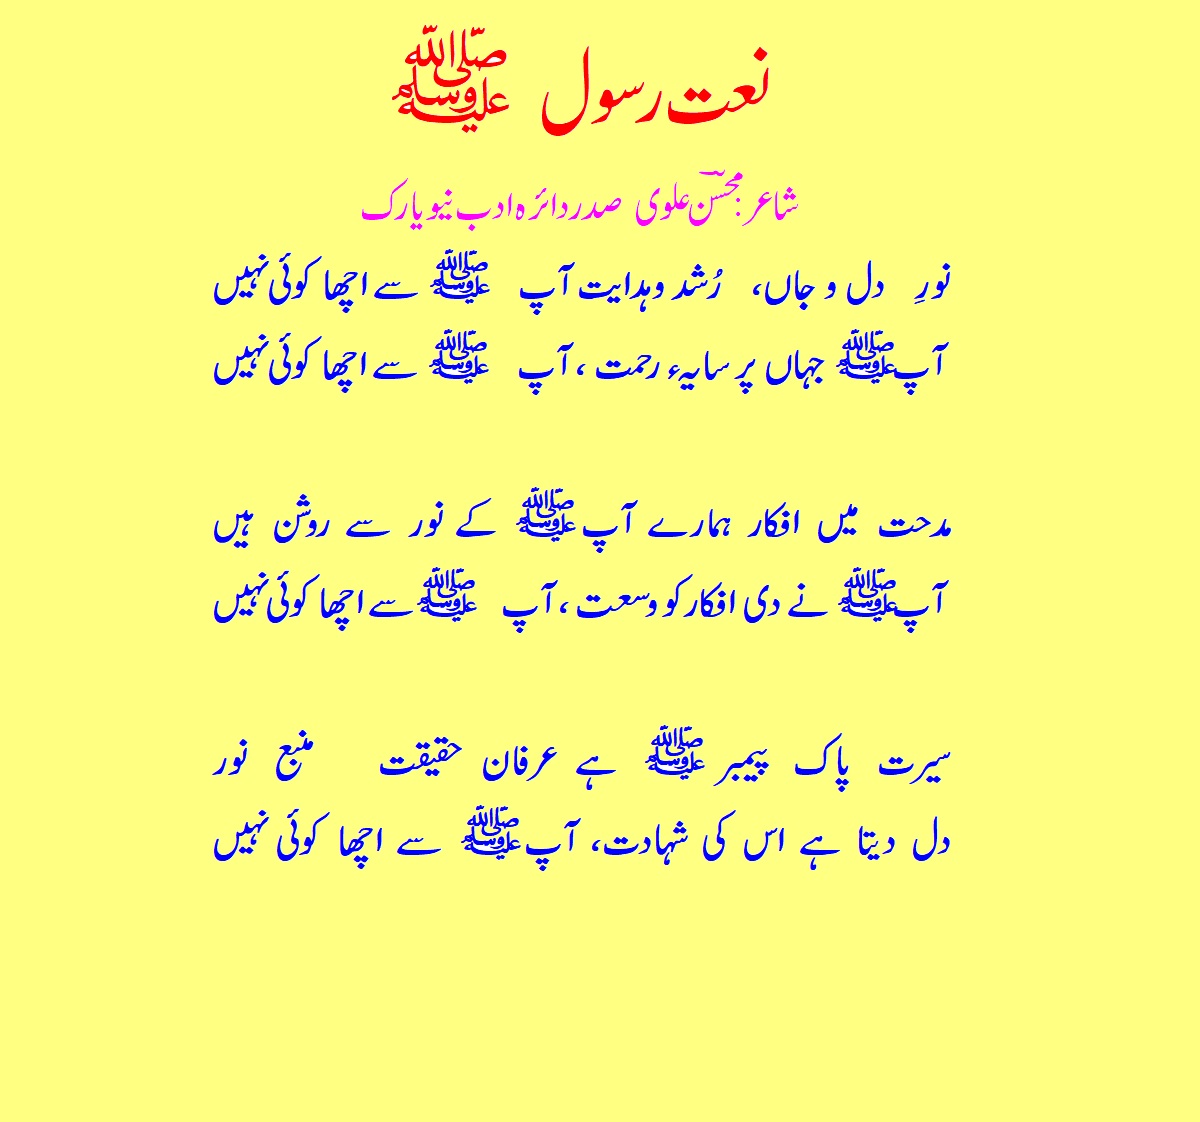 نعت رسول ﷺ
شاعر: محسنؔ علوی صدر دائرہ ادب نیویارک
نورِ دل و جاں، رُشد و ہدایت آپ ﷺ سے اچھا کوئی نہیں
آپ ﷺ جہاں پر سایہء رحمت ، آپ ﷺ سے اچھا کوئی نہیں
مدحت میں افکار ہمارے آپ ﷺ کے نور سے روشن ہیں
آپ ﷺ نے دی افکار کو وسعت ، آپ ﷺ سے اچھا کوئی نہیں
سیرت پاک پیمبر ﷺ ہے عرفان حقیقت منبع نور
دل دیتا ہے اس کی شہادت، آپ ﷺ سے اچھا کوئی نہیں